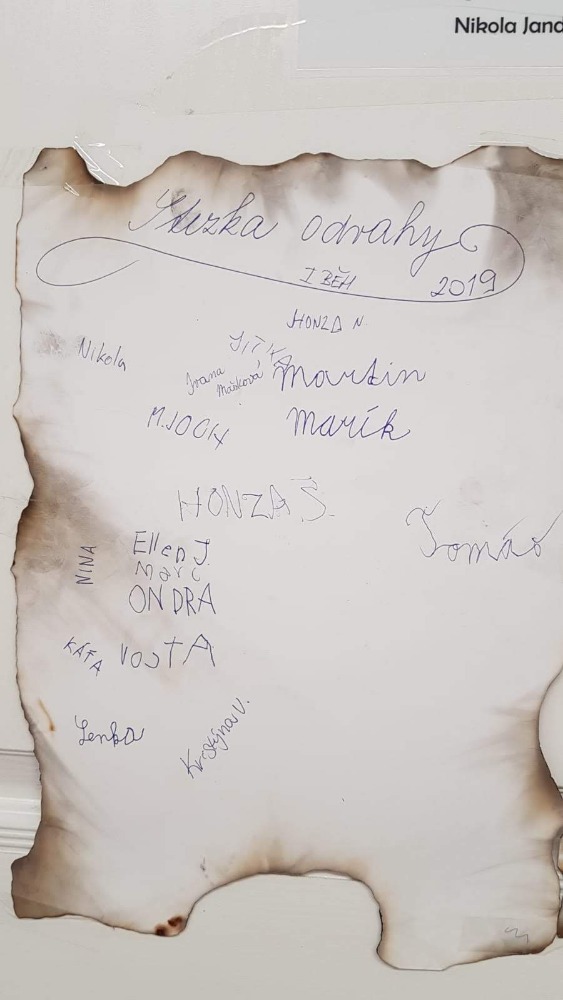 Nikola Jand
Stezka odvahy
I BĚH 2019
HONZA N.
JITKA
Nikola
Ivana
Mašková
Martin
M.JOCH
Marík
HONZA Š.
Tomáš
NINA
Ellen J.
Marc
ONDRA
KÁFA
VOJTA
Lenka
Kristýna V.